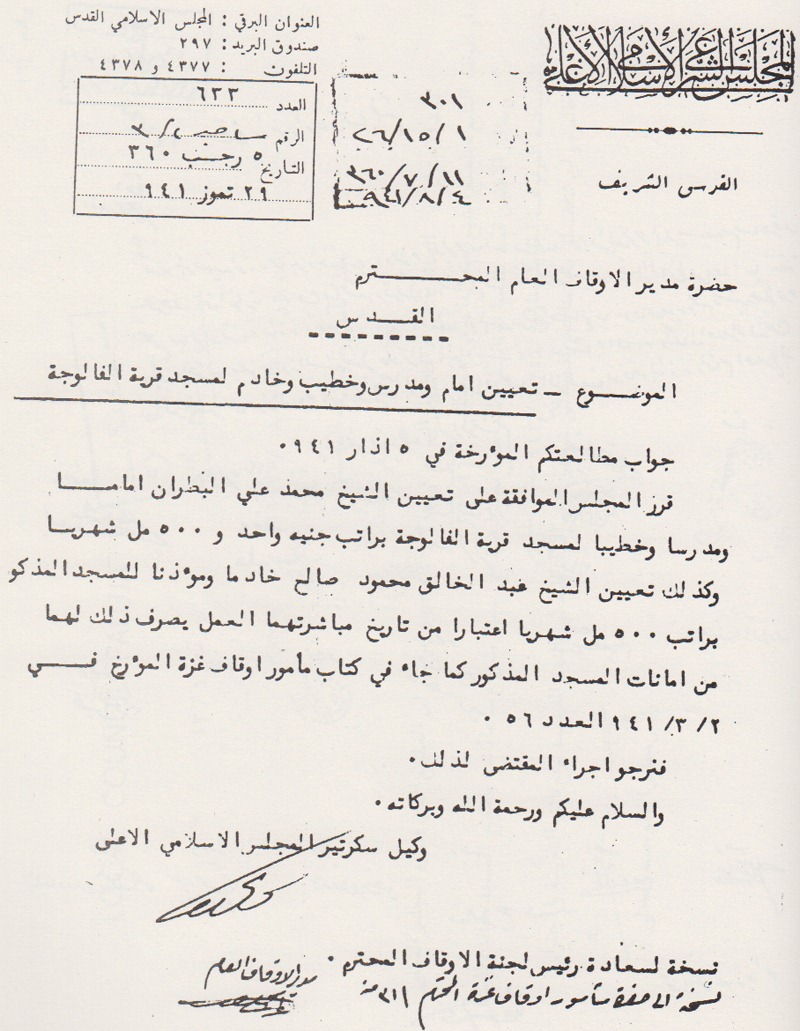 المجلس الشرعي الإسلامي الأعلى
القدس الشريف
العنوان البرقي : المجلس الاسلامي القدس
صندوق البريد : ٢٩٧
التلفون : ٤٣٧٧ و ٤٣٧٨
العدد ٦٢٢
الرقم
التاريخ ٥ رجب ٣٦٠
٢٩ تموز ٩٤١
٣٠١
٢٦/١٥/١
٣٦٠/٧/١١
٩٤١/٨/٤
حضرة مدير الاوقاف العام المحترم
القدس
الموضوع – تعيين امام ومدرس وخطيب وخادم لمسجد قرية الفالوجة
جواب مطالعتكم المؤرخة في ٥ اذار ٩٤١٠
قرر المجلس الموافقة على تعيين الشيخ محمد علي البطران اماما
ومدرسا وخطيبا لمسجد قرية الفالوجة براتب جنيه واحد و ٥٠٠ مل شهريا
وكذلك تعيين الشيخ عبد الخالق محمود صالح خادما ومؤذنا للمسجد المذكو
براتب ٥٠٠ مل شهريا اعتبارا من تاريخ مباشرتهما العمل يصرف ذلك لهما
من امانات المسجد المذكور كما جاء في كتاب مأمور اوقاف غزة المؤرخ في
٩٤١/٣/٢ العدد ٥٦ ٠
فنرجو اجراء المقتضى لذلك٠
والسلام عليكم ورحمة الله وبركاته٠
وكيل سكرتير المجلس الاسلامي الاعلى
نسخة لسعادة رئيس لجنة الاوقاف المحترم ٠
نسخة الى حضرة مأمور اوقاف غزة المحترم
مدير الاوقاف العام